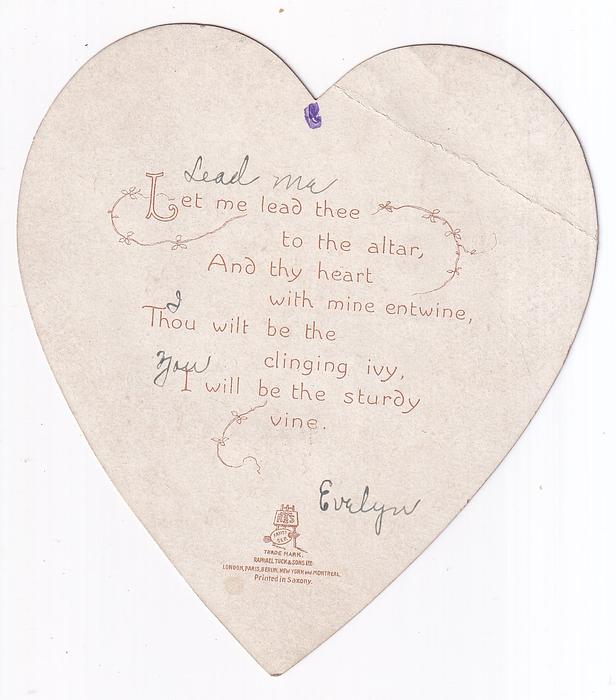 Lead me
Let me lead thee
to the altar,
And thy heart
with mine entwine,
I
Thou wilt be the
clinging ivy,
You
I will be the sturdy
vine.
Evelyn
TRADE MARK.
RAPHAEL TUCK & SONS LTD
LONDON, PARIS, BERLIN, NEW YORK and MONTREAL.
Printed in Saxony.